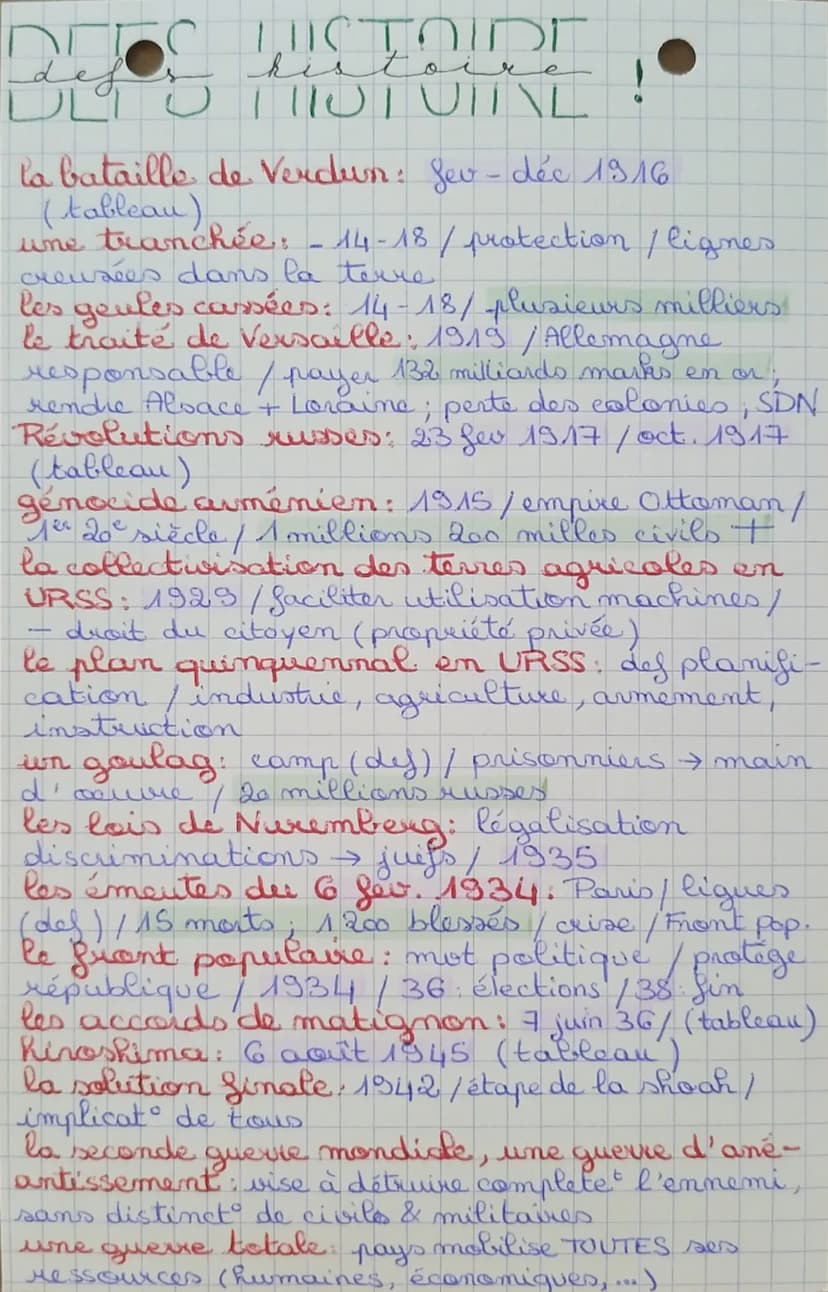 DEFS HISTOIRE !
defs histoire
la bataille de Verdun : fev - déc 1916
(tableau)
une tranchée : - 14-18 / protection / lignes
creusées dans la terre
les geules cassées : 14-18 / plusieurs milliers
le traité de Versaille : 1919 / Allemagne
responsable / payer 132 milliards marks en or ;
rendre Alsace + Loraine ; perte des colonies ; SDN
Révolutions russes : 23 fev 1917 / oct. 1917
(tableau)
génocide arménien : 1915 / empire Ottoman /
1er 20e siècle / 1 millions 200 milles civils +
la collectivisation des terres agricoles en
URSS : 1929 / faciliter utilisation machines /
- droit du citoyen (propriété privée)
le plan quinquennal en URSS : def planifi-
cation / industrie, agriculture, armement,
instruction
un goulag : camp (def) / prisonniers → main
d'oeuvre / 20 millions russes
les lois de Nuremberg : légalisation
discriminations → juifs / 1935
les émeutes du 6 fev. 1934 : Paris / ligues
(def) / 15 morts ; 1200 blessés / crise / Front pop.
le front populaire : mvt politique / protège
république / 1934 / 36 : élections / 38 : fin
les accords de matignon : 7 juin 36 / (tableau)
hiroshima : 6 août 1945 (tableau)
la solution finale : 1942 / étape de la shoah /
implicat° de tous
la seconde guerre mondiale, une guerre d'ané-
antissement : vise à détruire complètet l'ennemi,
sans distinct° de civils & militaires
une guerre totale : pays mobilise TOUTES ses
ressources (humaines, économiques, ...)